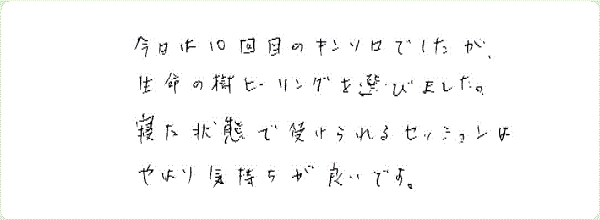 今日は10回目のキンソロでしたが、
生命の樹ヒーリングを選びました。
寝た状態で受けられるセッションは
やはり気持ちが良いです。